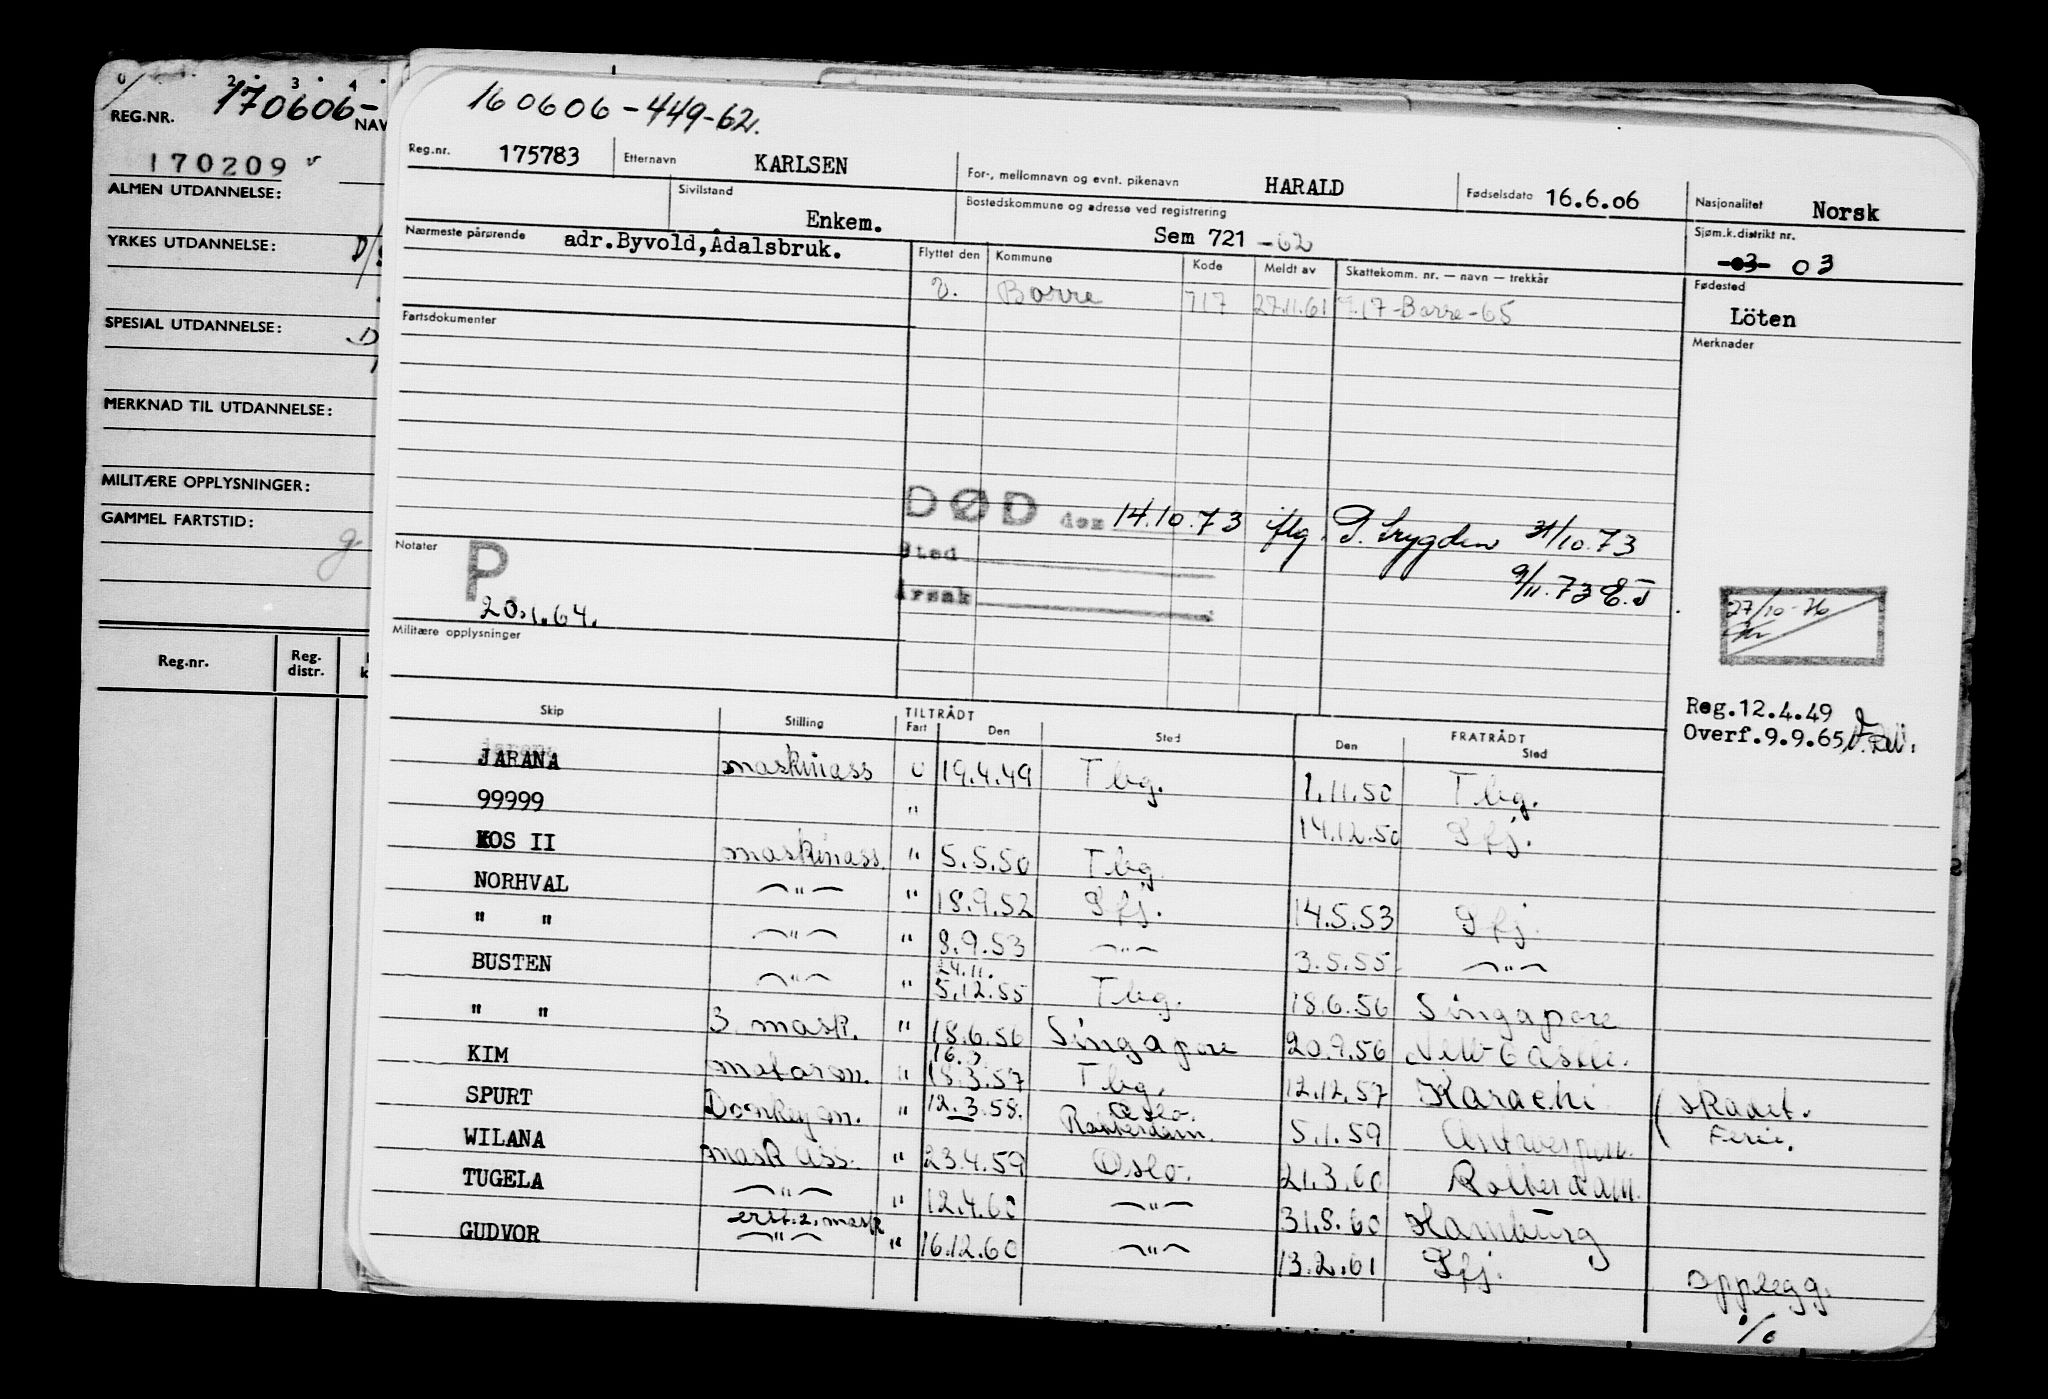 REG.NR. 170606-
NAV
170209
ALMEN UTDANNELSE:
YRKES UTDANNELSE:
SPESIAL UTDANNELSE:
MERKNAD TIL UTDANNELSE:
MILITÆRE OPPLYSNINGER:
GAMMEL FARTSTID:
Reg.nr. Reg. distr.
160606-449-62.
Reg.nr. 175783 Etternavn KARLSEN For-, mellomnavn og evnt. pikenavn HARALD Fødselsdato 16.6.06 Nasjonalitet Norsk
Sivilstand Enkem. Bostedskommune og adresse ved registrering Sem 721 -62 Sjøm.k.distrikt nr. 03 03
Nærmeste pårørende adr.Byvold,Ådalsbruk. Flyttet den Kommune Kode Meldt av Skattekomm. nr. — navn — trekkår Fødested
v. Borre 717 27.11.61 717-Borre-65 Löten
Fartsdokumenter Merknader
DØD den 14.10.73 iflg. P. Trygden 31/10.73
Sted
9/11.73 E.J
Årsak
Notater P
20.1.64.
27/10-76
Militære opplysninger
Reg.12.4.49
Overf.9.9.65
Skip Stilling TILTRÅDT Fart Den Sted FRATRÅDT Den Sted
JARANA maskinass U 19.4.49 Tbg. 1.11.50 Tbg.
99999 " 14.12.50 Sfj.
KOS II maskinass. " 5.5.50 Tbg.
NORHVAL —"— " 18.9.52 Sfj. 14.5.53 Sfj.
" " —"— " 8.9.53 —"— 3.5.55 —"—
BUSTEN —"— " 24.11. 5.12.55 Tbg. 18.6.56 Singapore
" " 3 mask. " 18.6.56 Singapore 20.9.56 New-Castle.
KIM motorm. " 16.3 18.3.57 Tbg. 12.12.57 Karachi skadet.
SPURT Donkeym. " 12.3.58. Oslo. Rotterdam. 5.1.59 Antwerpen. Ferie.
WILANA mask ass. " 23.4.59 Oslo. 21.3.60 Rotterdam.
TUGELA —"— " 12.4.60 —"— 31.8.60 Hamburg
GUDVOR erst.2.mask —"— " 16.12.60 —"— 13.2.61 Sfj. opplegg.